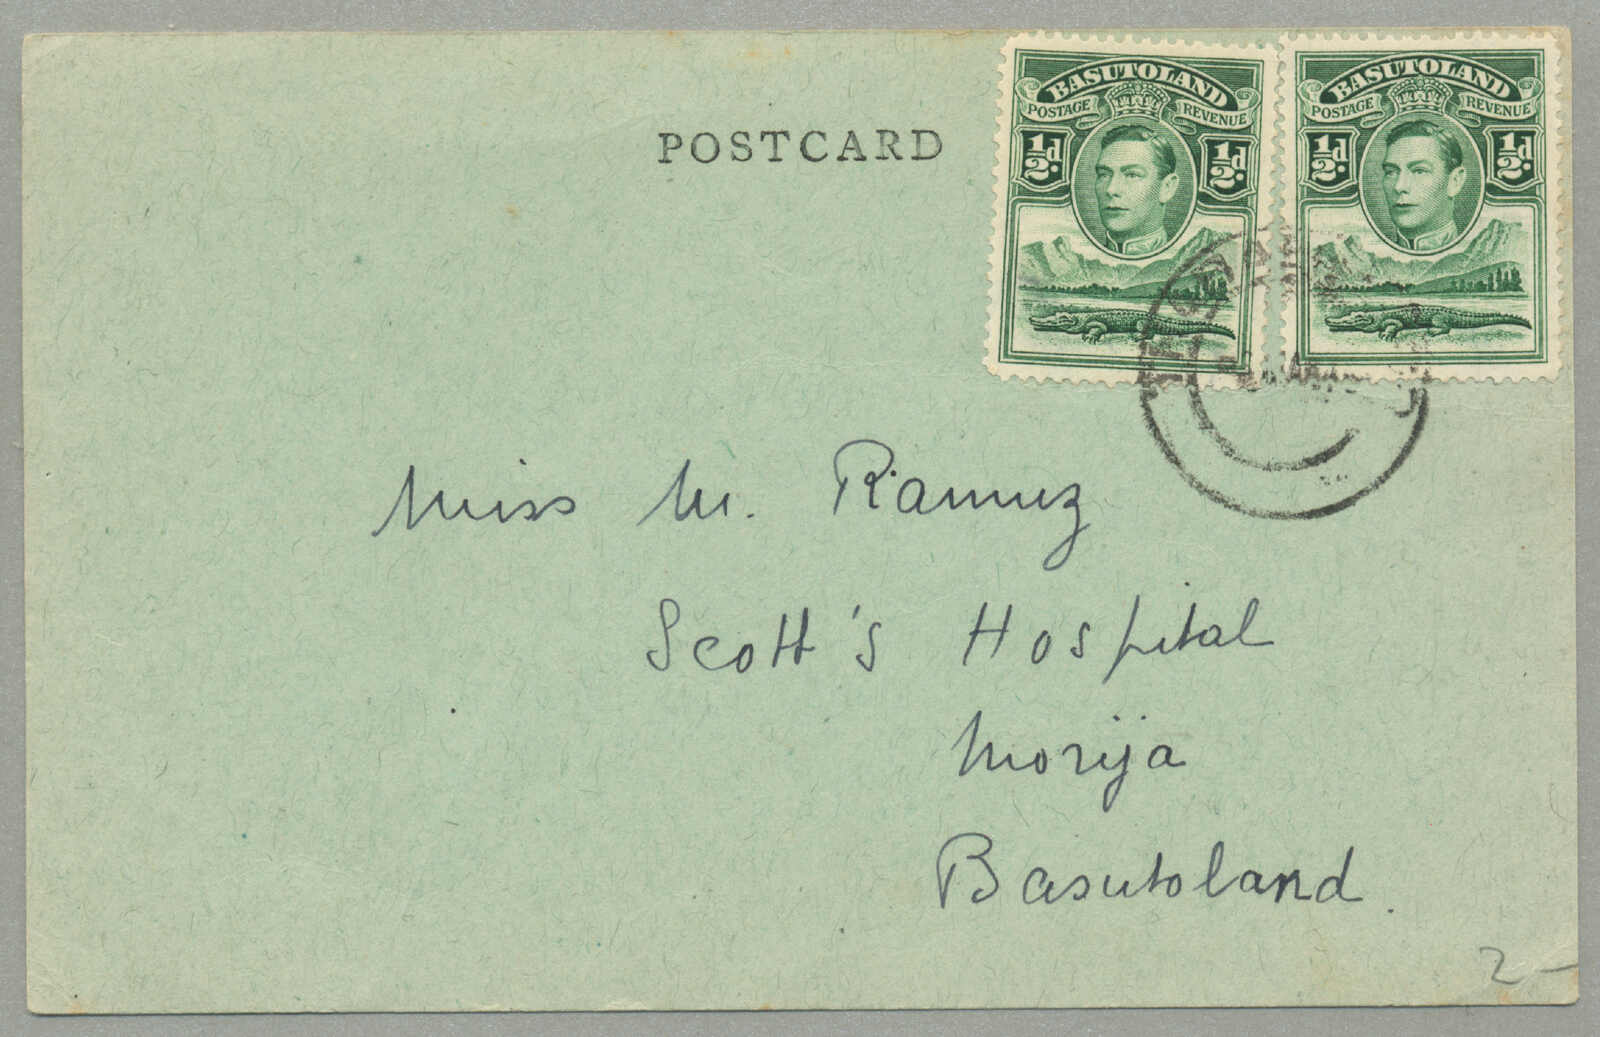 POSTCARD
BASUTOLAND
POSTAGE REVENUE
½d. ½d.
BASUTOLAND
POSTAGE REVENUE
½d. ½d.
Miss M. Ramuz
Scott's Hospital
Morija
Basutoland.
2-